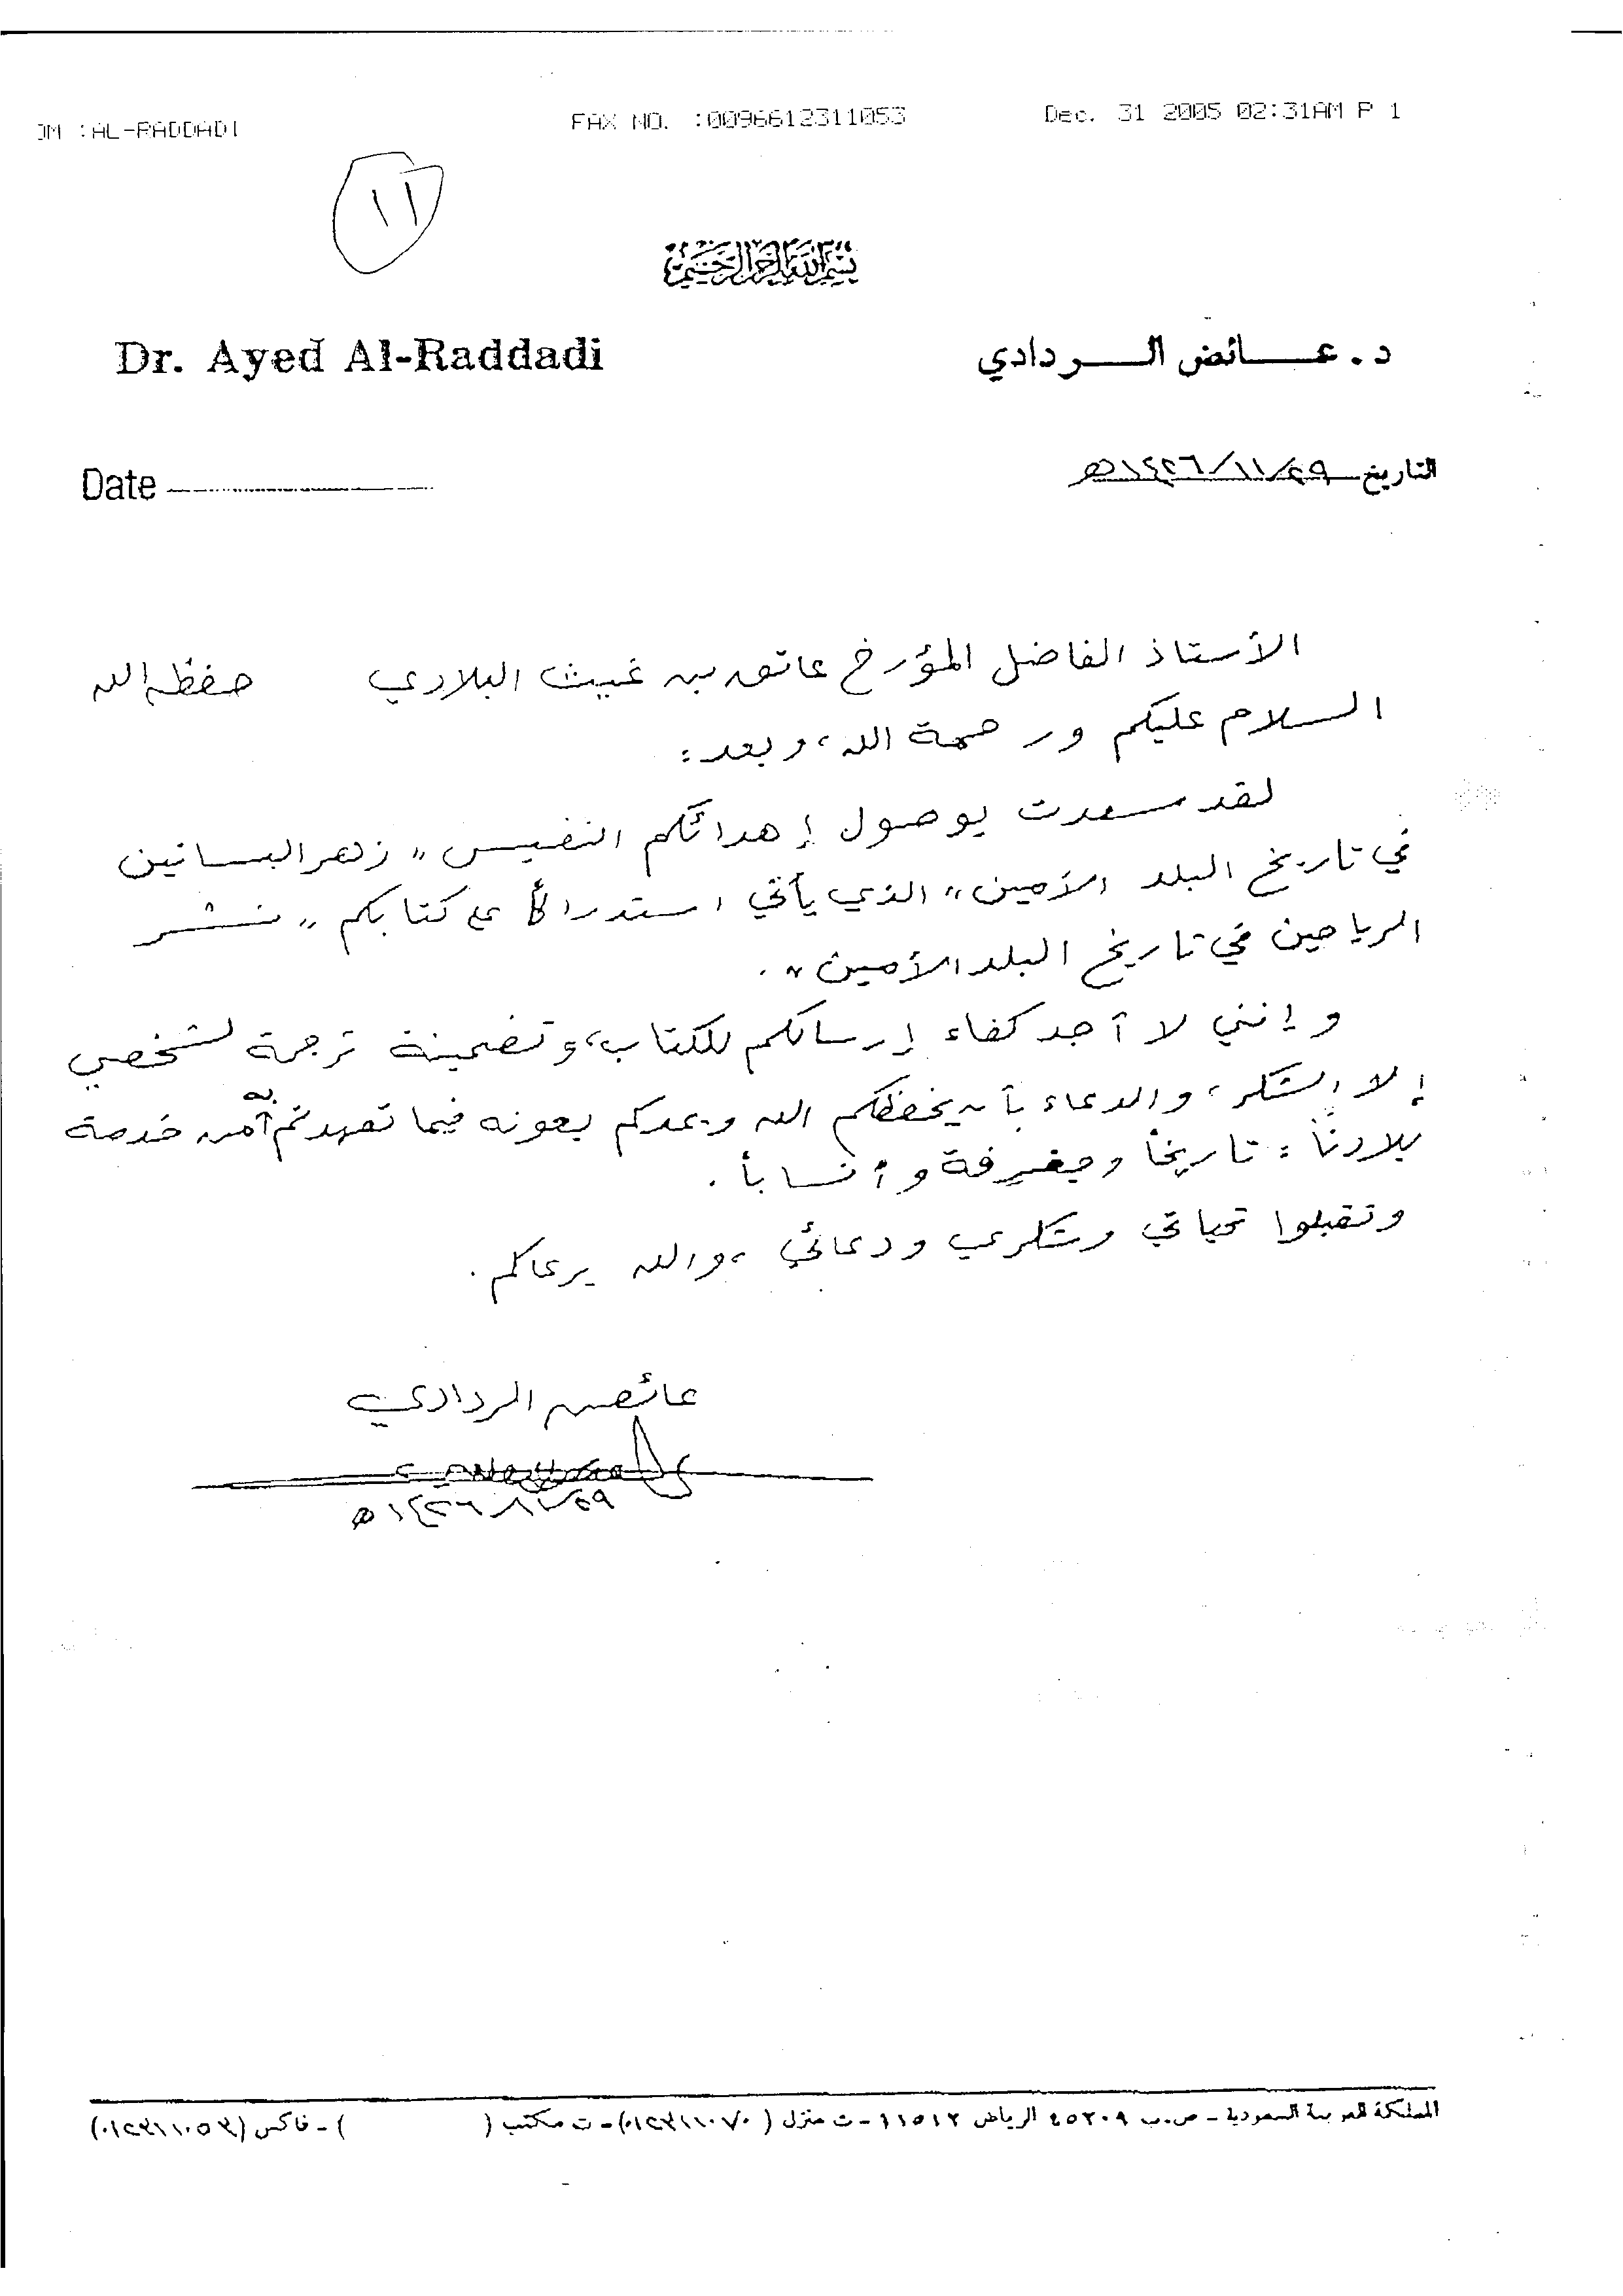 OM :AL-RADDADI
FAX NO. :0096612311053
Dec. 31 2005 02:31AM P 1
١١
بسم الله الرحمن الرحيم
Dr. Ayed Al-Raddadi
د. عائض الردادي
Date
التاريخ ١٤٢٦/١١/٢٩هـ
الأستاذ الفاضل المؤرخ عاتق بن غيث البلادي حفظه الله
السلام عليكم ورحمة الله، وبعد:
لقد سعدت بوصول إهدائكم النفيس "زهر البساتين
في تاريخ البلد الأمين" الذي يأتي استدراكاً على كتابكم "نشر
الرياحين في تاريخ البلد الأمين".
وإنني لا أجد كفاء إرسالكم للكتاب، وتضمينة ترجمة لشخصي
إلا الشكر، والدعاء بأن يحفظكم الله ويمدكم بعونه فيما تعهدتم به من خدمة
بلادنا: تاريخاً وجغرفة وأنساباً.
وتقبلوا تحياتي وشكري ودعائي، والله يرعاكم.
عائض الردادي
١٤٢٦/١١/٢٩هـ
المملكة العربية السعودية - ص.ب ٤٥٢٠٩ الرياض ١١٥١٢ - ت منزل (٠١٢٣١١٠٧٠) - ت مكتب ( ) - فاكس (٠١٢٣١١٠٥٣)